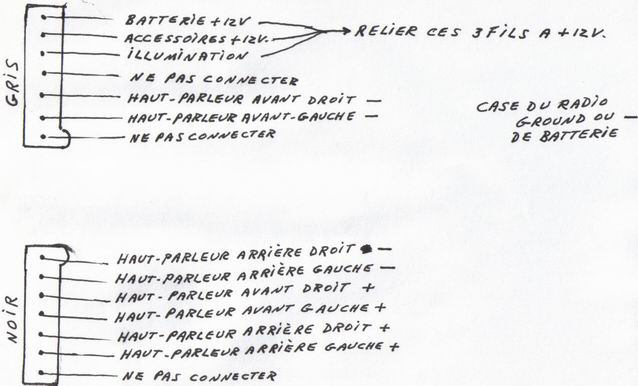 GRIS
BATTERIE +12V
ACCESSOIRES +12V.
ILLUMINATION
RELIER CES 3 FILS A +12V.
NE PAS CONNECTER
HAUT-PARLEUR AVANT DROIT —
HAUT-PARLEUR AVANT-GAUCHE —
NE PAS CONNECTER
CASE DU RADIO
GROUND OU —
DE BATTERIE
NOIR
HAUT-PARLEUR ARRIÈRE DROIT —
HAUT-PARLEUR ARRIÈRE GAUCHE —
HAUT-PARLEUR AVANT DROIT +
HAUT-PARLEUR AVANT GAUCHE +
HAUT-PARLEUR ARRIÈRE DROIT +
HAUT-PARLEUR ARRIÈRE GAUCHE +
NE PAS CONNECTER